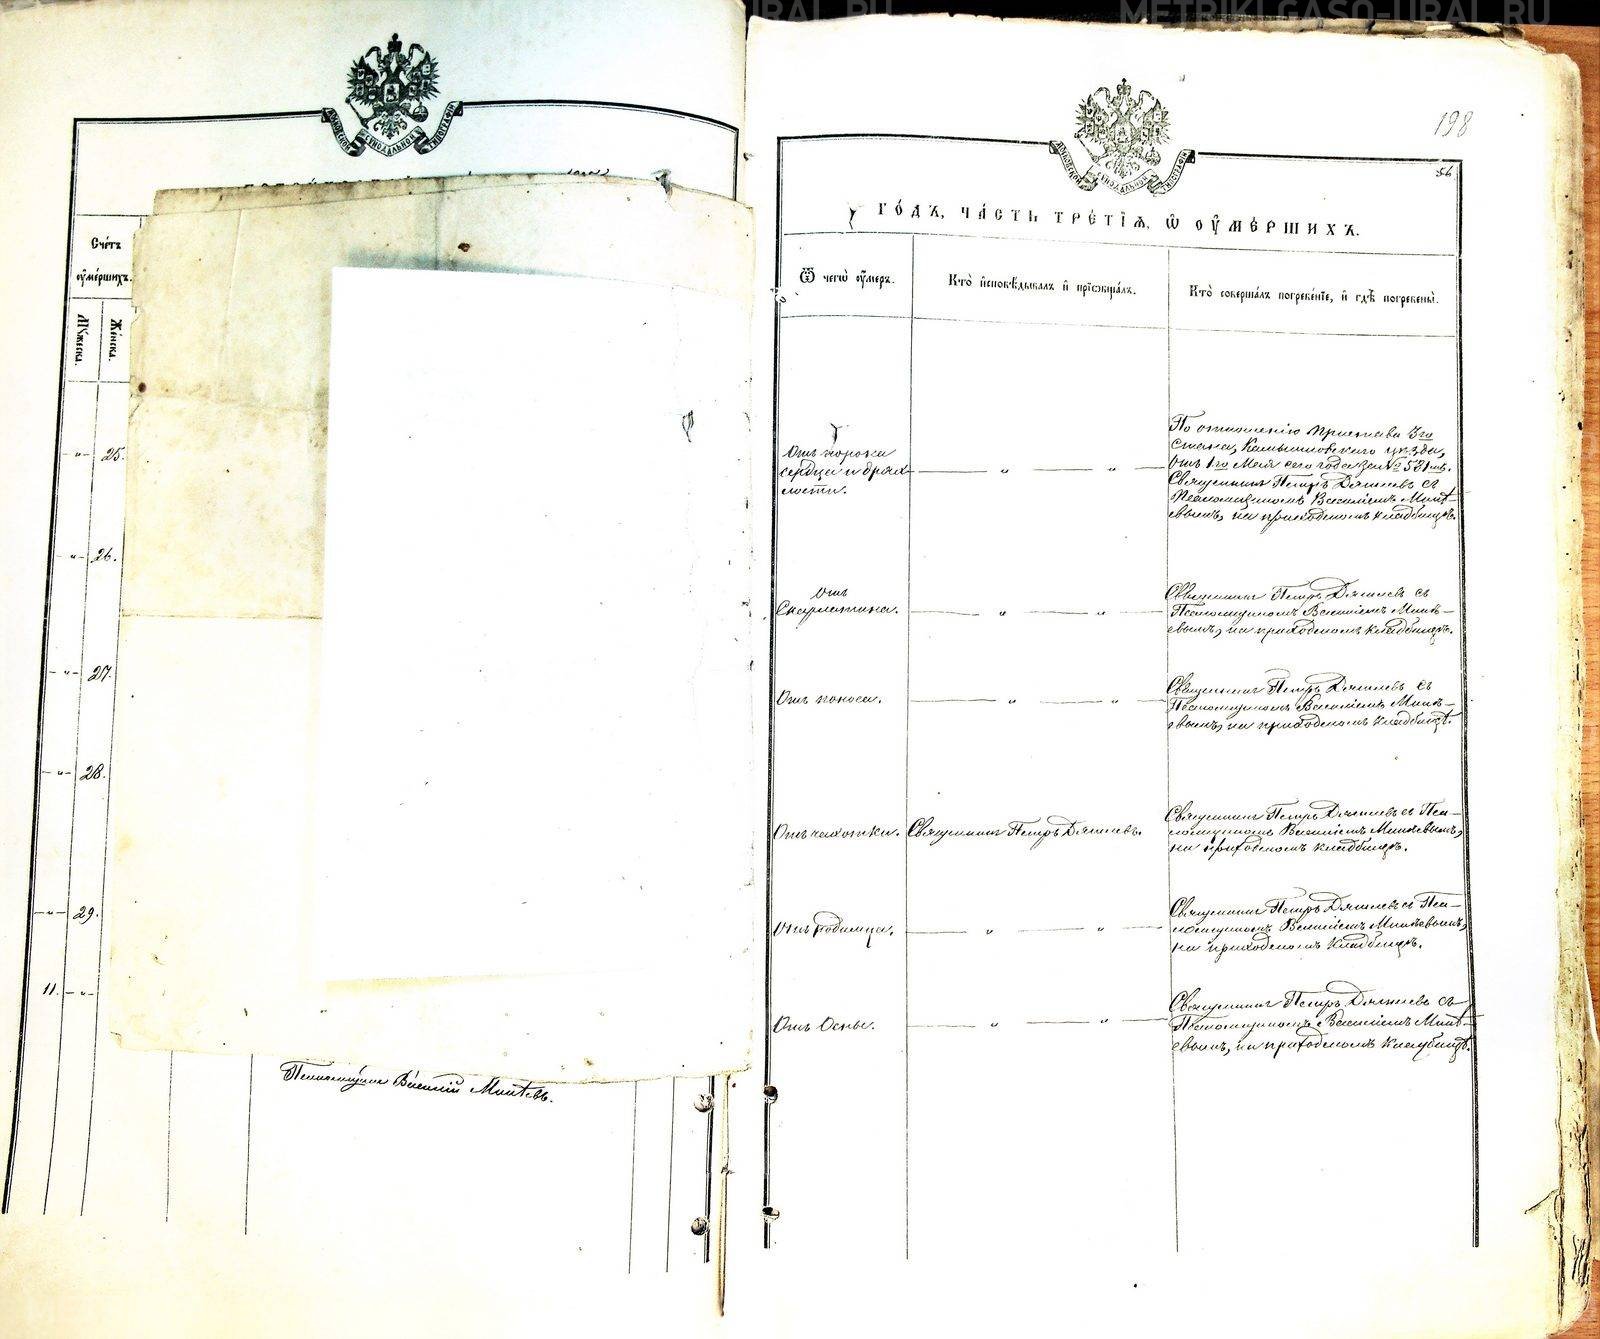 METRIKI.GASO-URAL.RU
МОСКОВСКОЙ СѴНОДАЛЬНОЙ ТИПОГРАФІИ
Сче́тъ
ᲂумершихъ.
Мꙋжеска.
Же́нска.
-„- 25.
-„- 26.
-„- 27.
-„- 28.
-„- 29.
11. -„-
Псаломщикъ Василій Минѣевъ.
МОСКОВСКОЙ СѴНОДАЛЬНОЙ ТИПОГРАФІИ
198
56
ГО́ДЪ, ЧА́СТЬ ТРЕ́ТІѦ, Ѽ ОУ҆МЕ́РШИХЪ.
Ѿ чегѡ̀ ᲂу҆́меръ.
Кто̀ и҆сповѣ́дывалъ и҆ прїѡбща́лъ.
Кто̀ соверша́лъ погребе́нїе, и҆ гдѣ̀ погребены̀.
Отъ порока
сердца и дрях
лости.
— „ — „ —
По отношенію Пристава 3го
стана, Камышловскаго уѣзда,
отъ 1го Мая сего года за № 531мъ.
Священникъ Петръ Дягилевъ съ
Псаломщикомъ Василіемъ Минѣ-
евымъ, на приходскомъ кладбищѣ.
Отъ
Скарлатина.
— „ — „ —
Священникъ Петръ Дягилевъ съ
Псаломщикомъ Василіемъ Минѣ-
евымъ, на приходскомъ кладбищѣ.
Отъ поноса.
— „ — „ —
Священникъ Петръ Дягилевъ съ
Псаломщикомъ Василіемъ Минѣ-
евымъ, на приходскомъ кладбищѣ.
Отъ чахотки.
Священникъ Петръ Дягилевъ.
Священникъ Петръ Дягилевъ съ Пса-
ломщикомъ Василіемъ Минѣевымъ,
на приходскомъ кладбищѣ.
Отъ родимца.
— „ — „ —
Священникъ Петръ Дягилевъ съ Пса-
ломщикомъ Василіемъ Минѣевымъ,
на приходскомъ кладбищѣ.
Отъ Оспы.
— „ — „ —
Священникъ Петръ Дягилевъ съ
Псаломщикомъ Василіемъ Минѣ-
евымъ, на приходскомъ кладбищѣ.